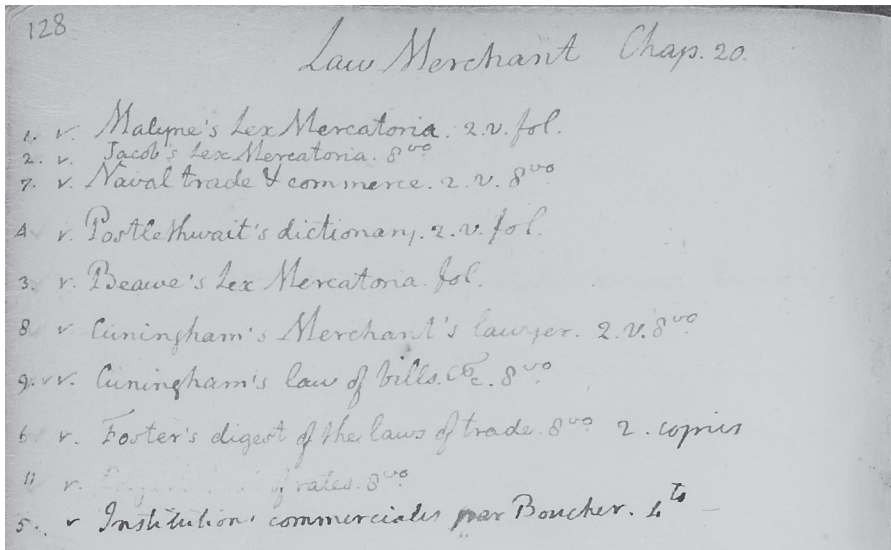 128
Law Merchant Chap. 20.
1. v. Malyne's Lex Mercatoria. 2. v. fol.
2. v. Jacob's Lex Mercatoria. 8vo
7. v. Naval trade & commerce. 2. v. 8vo
4 v. Postlethwait's dictionary. 2. v. fol.
3. v. Beawe's Lex Mercatoria. fol.
8 v Cuningham's Merchant's lawyer. 2. v. 8vo
9. v v. Cuningham's law of bills. &c. 8vo
6 v. Foster's digest of the laws of trade. 8vo 2. copies
11 v. of rates. 8vo
5. v Institutions commerciales par Boucher. 4to